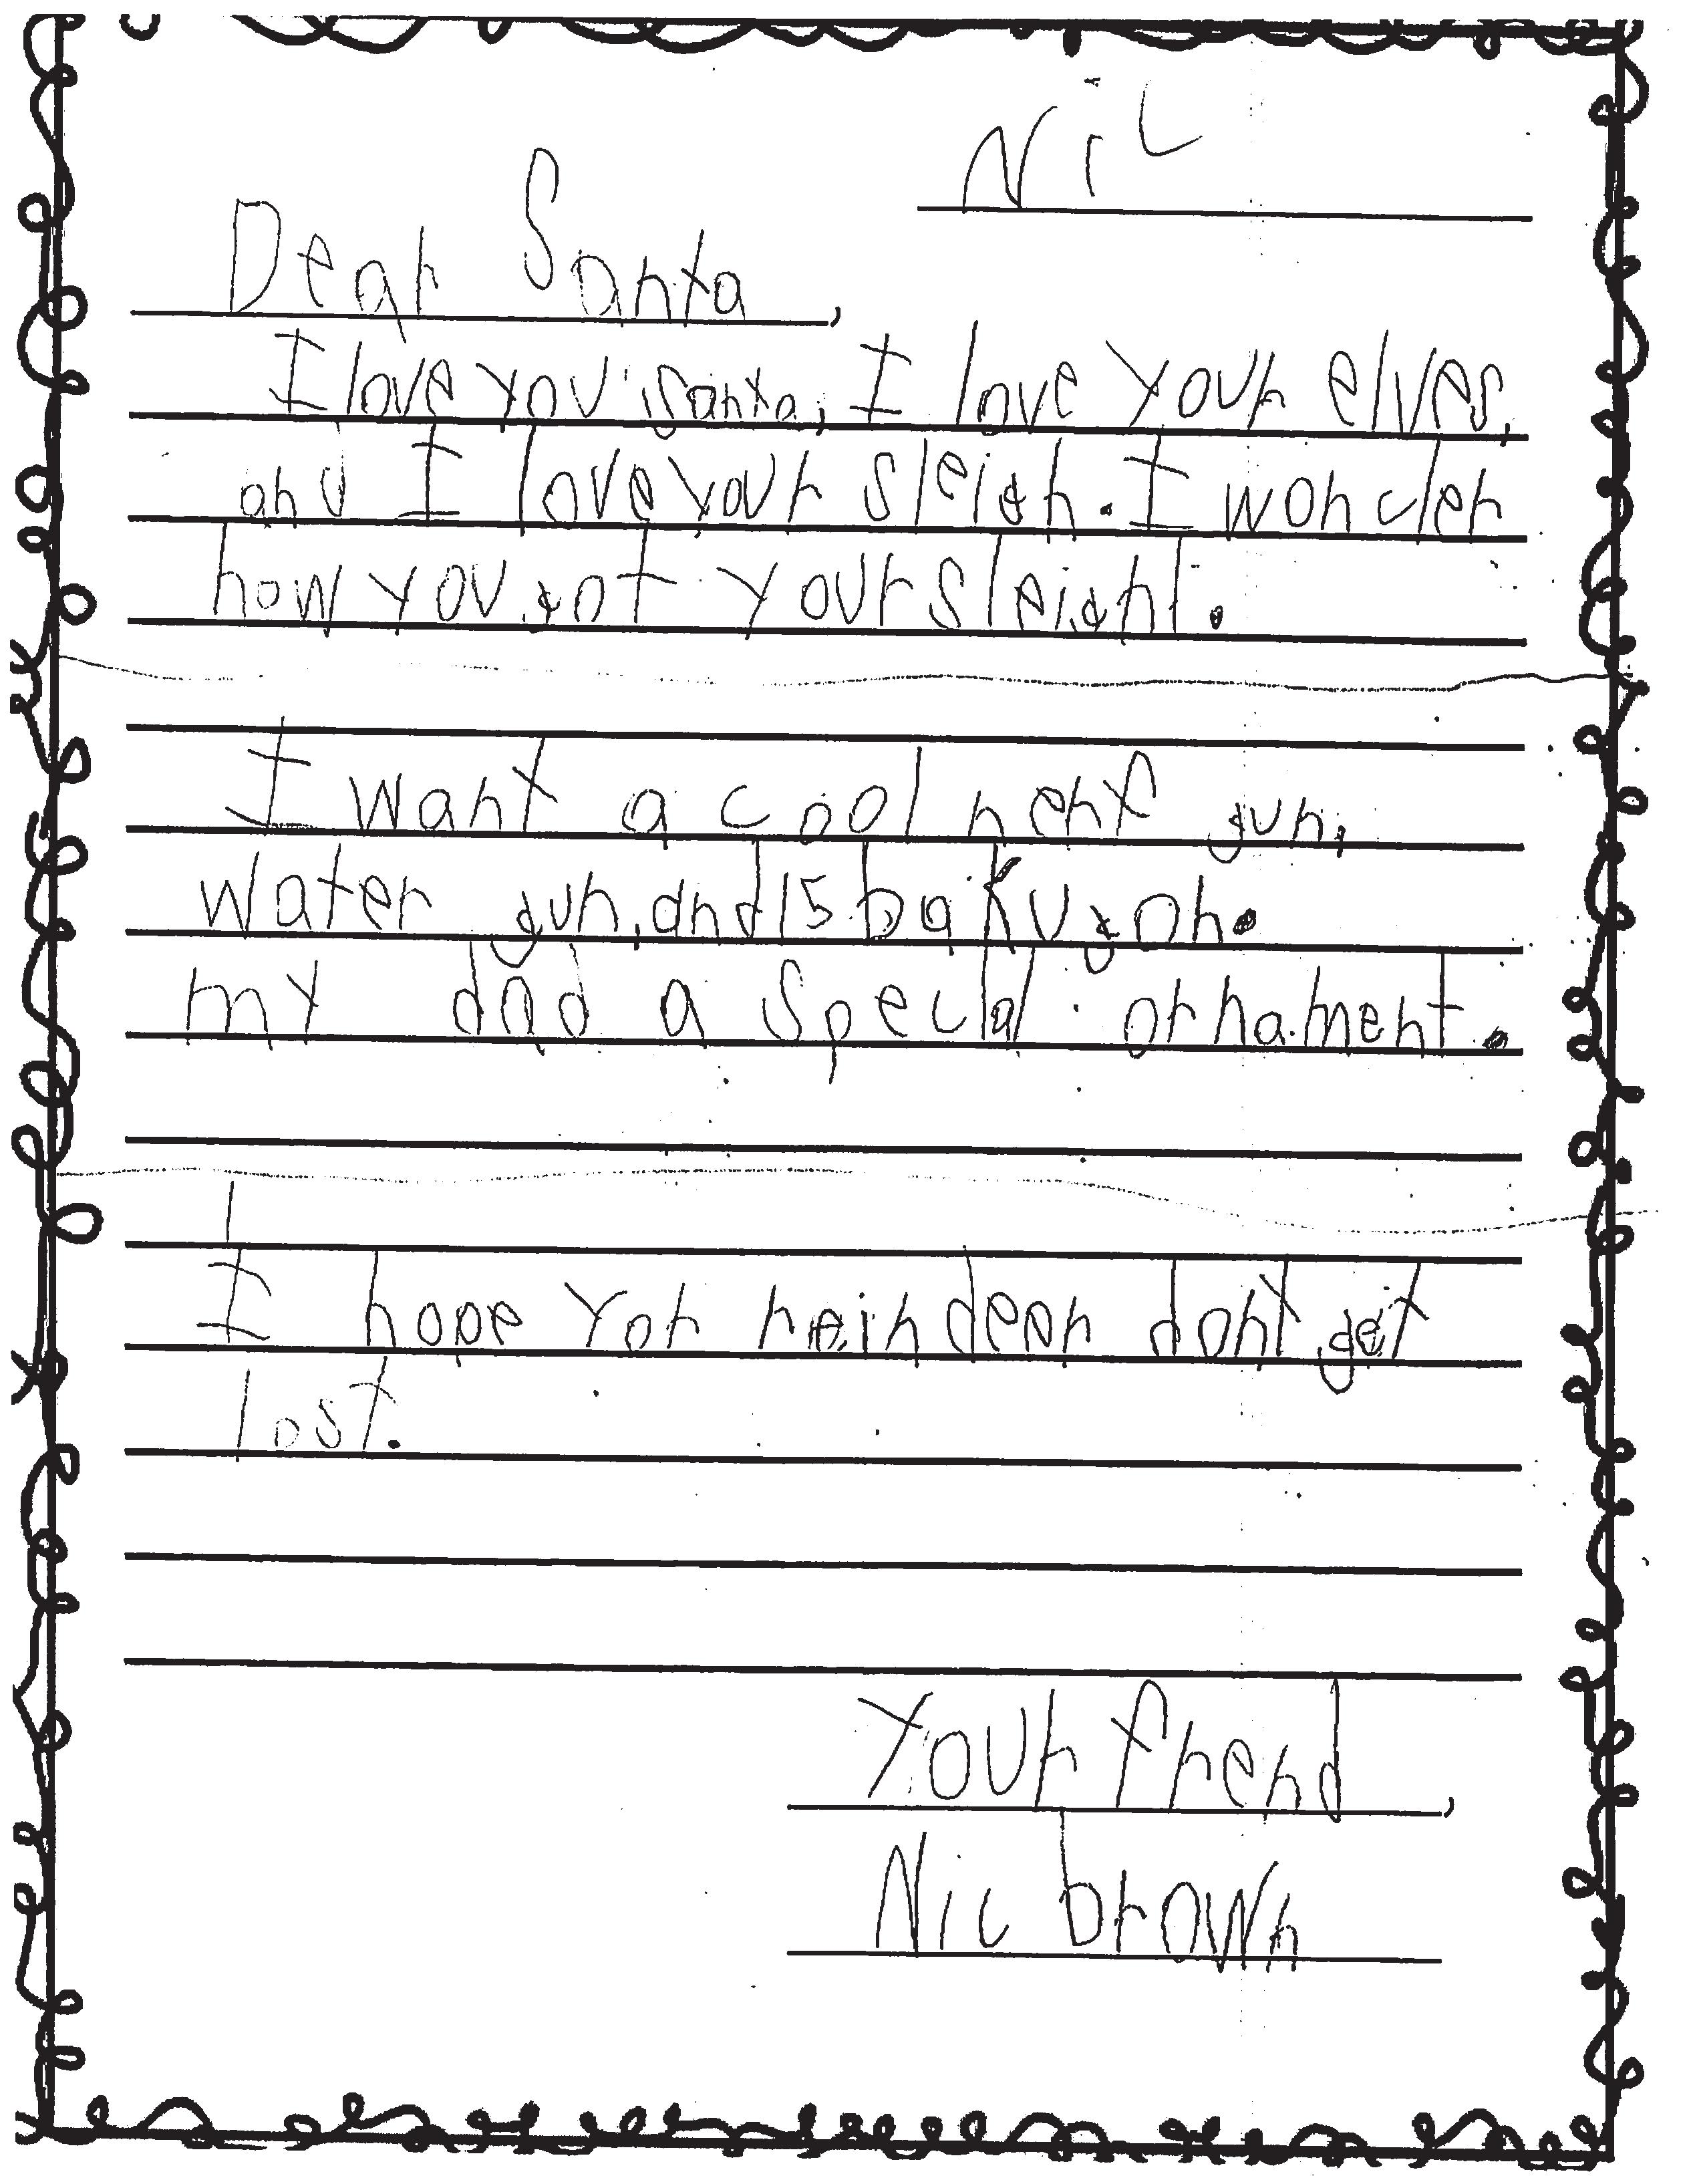 Nic
Dear Santa,
I love you Santa, I love your elves,
and I love your sleigh. I wonder
how you got your sleigh.
I want a cool nerf gun,
water gun, and 15 bakugon.
my dad a special ornament.
I hope yor reindeer dont get
lost.
Your frend,
Nic brown